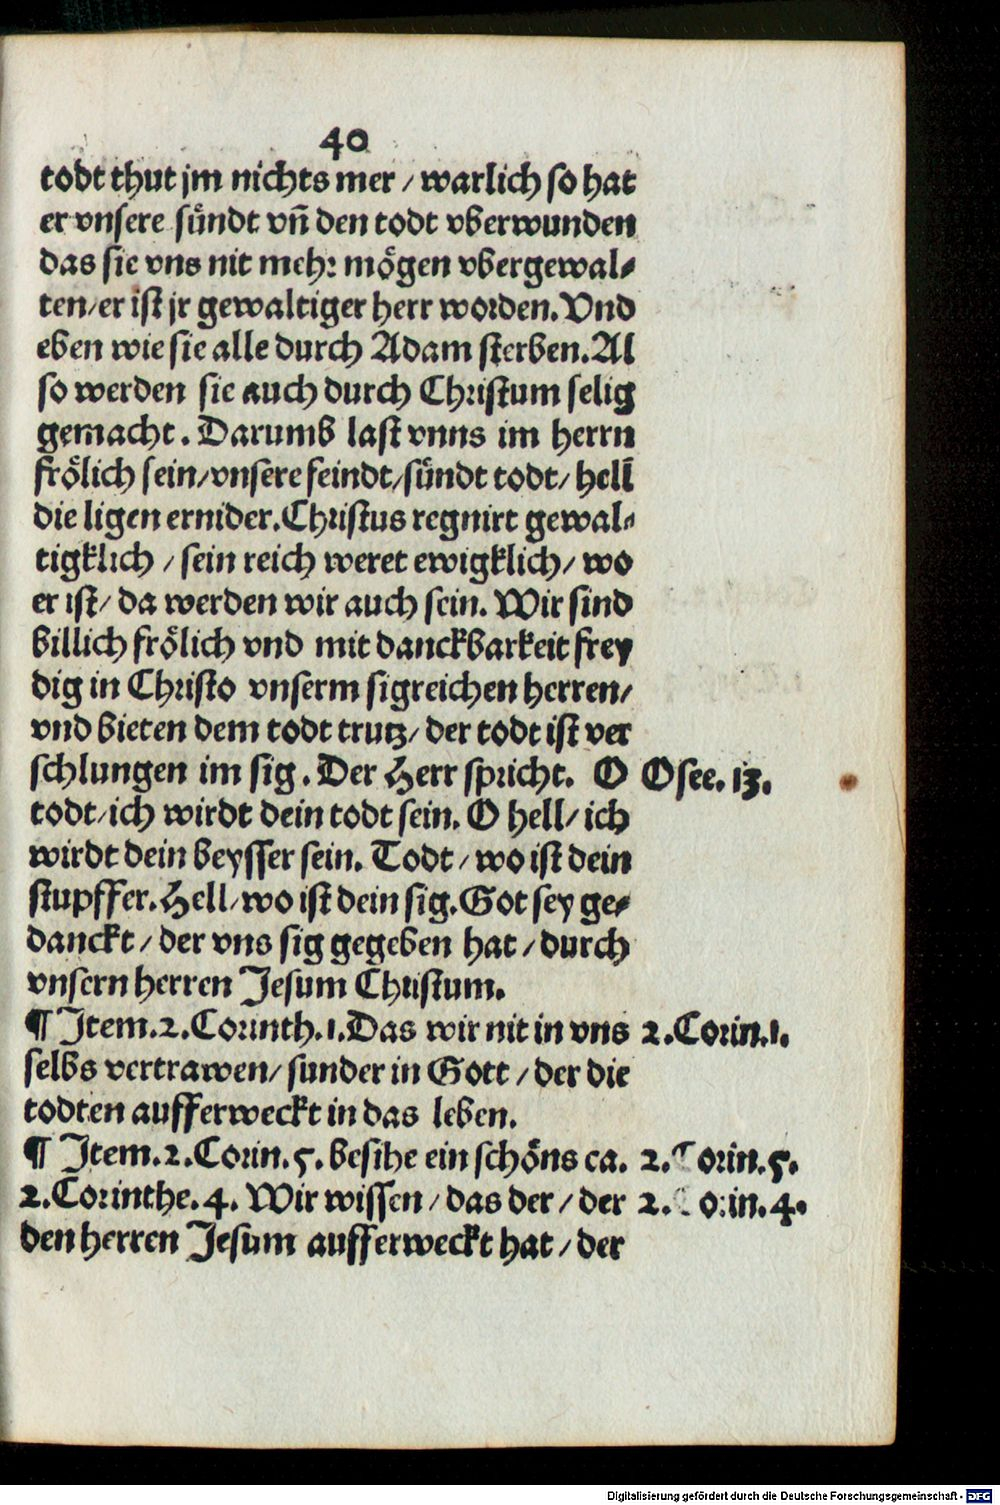 40
todt thut jm nichts mer / warlich so hat
er vnsere sündt vñ den todt vberwunden
das sie vns nit mehr mögen vbergewal-
ten/er ist jr gewaltiger herr worden. Vnd
eben wie sie alle durch Adam sterben. Al
so werden sie auch durch Christum selig
gemacht. Darumb last vnns im herrn
frölich sein/vnsere feindt/sündt todt/ hell
die ligen ernider. Christus regnirt gewal-
tigklich / sein reich weret ewigklich/ wo
er ist/ da werden wir auch sein. Wir sind
billich frölich vnd mit danckbarkeit frey
dig in Christo vnserm sigreichen herren/
vnd bieten dem todt trutz/ der todt ist ver
schlungen im sig. Der Herr spricht. O Osee. 13.
todt/ich wirdt dein todt sein. O hell/ ich
wirdt dein beysser sein. Todt / wo ist dein
stupffer. Hell/wo ist dein sig. Got sey ge-
danckt / der vns sig gegeben hat / durch
vnsern herren Jesum Christum.
¶ Item. 2. Corinth. 1. Das wir nit in vns 2. Corin. 1.
selbs vertrawen/ sunder in Gott / der die
todten aufferweckt in das leben.
¶ Item. 2. Corin. 5. besihe ein schöns ca. 2. Corin. 5.
2. Corinthe. 4. Wir wissen / das der / der 2. Corin. 4.
den herren Jesum aufferweckt hat / der
Digitalisierung gefördert durch die Deutsche Forschungsgemeinschaft - DFG